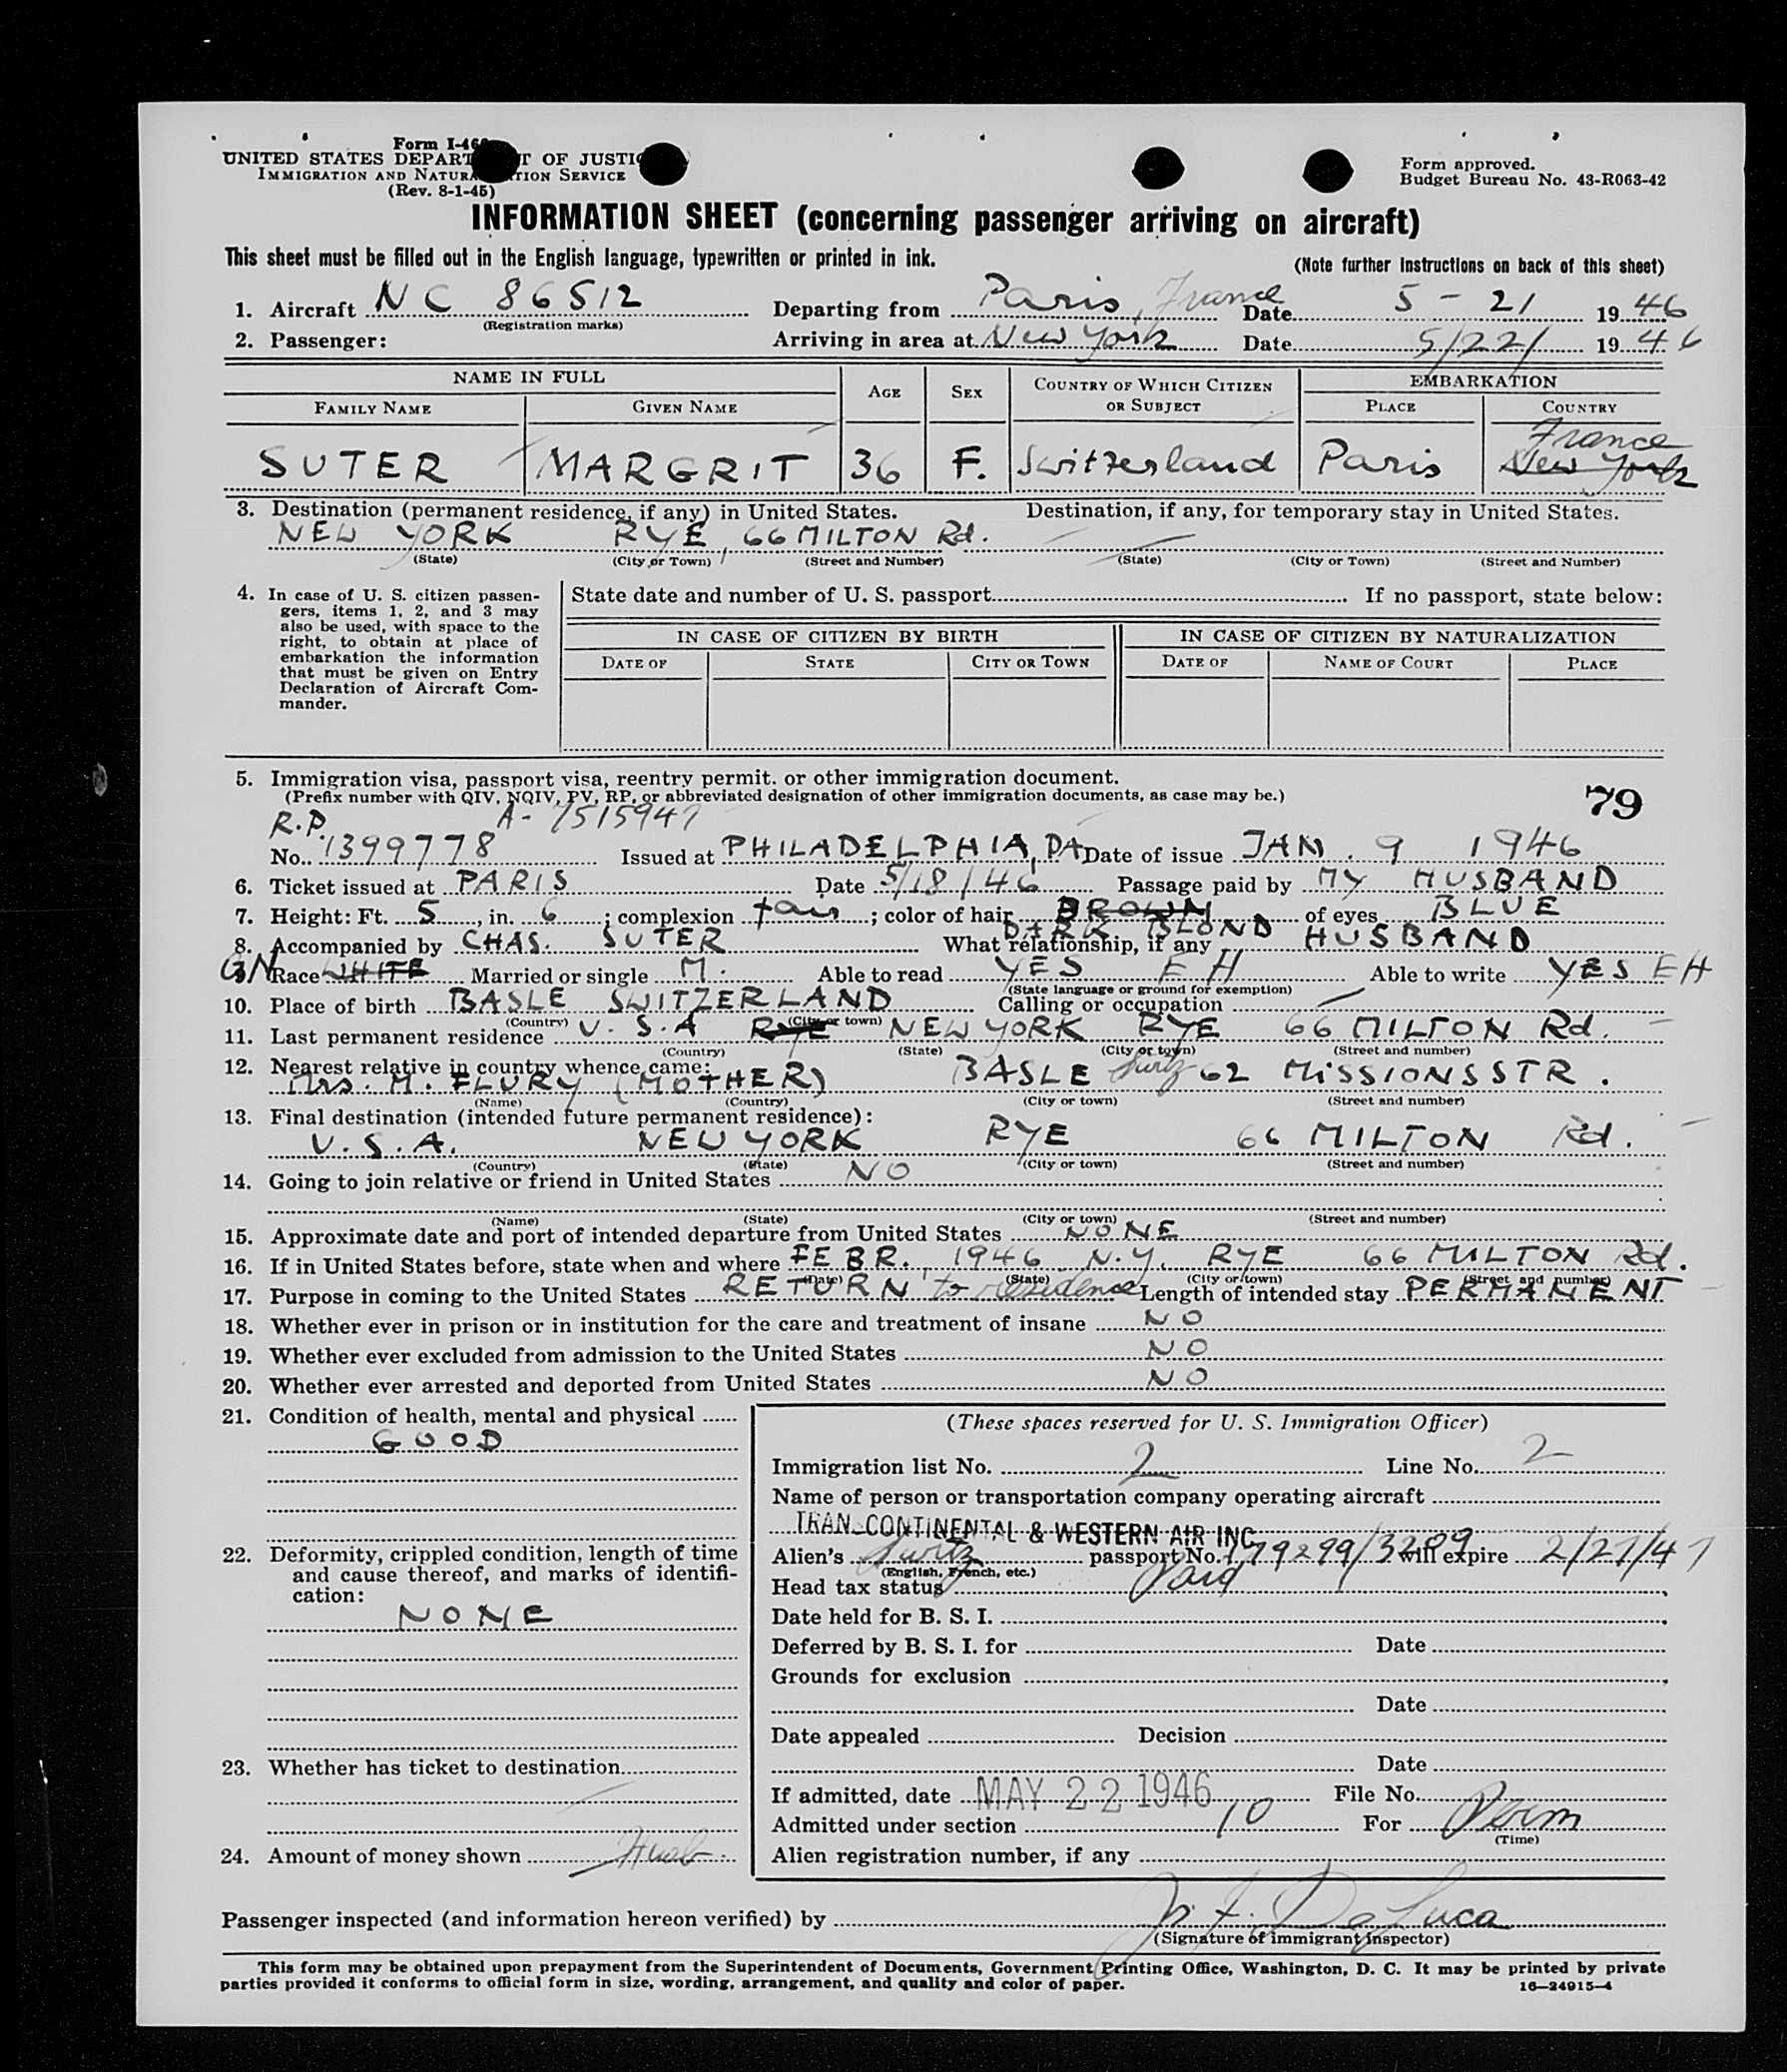 Form I-46
UNITED STATES DEPART T OF JUSTI
IMMIGRATION AND NATURA TION SERVICE
(Rev. 8-1-45)
Form approved.
Budget Bureau No. 43-R063-42
INFORMATION SHEET (concerning passenger arriving on aircraft)
This sheet must be filled out in the English language, typewritten or printed in ink.
(Note further instructions on back of this sheet)
1. Aircraft NC 86512 Departing from Paris, France Date 5-21 1946
(Registration marks)
2. Passenger: Arriving in area at New York Date 5/22/ 1946
NAME IN FULL AGE SEX COUNTRY OF WHICH CITIZEN OR SUBJECT EMBARKATION
FAMILY NAME GIVEN NAME PLACE COUNTRY
France
SUTER MARGRIT 36 F. Switzerland Paris New York
3. Destination (permanent residence, if any) in United States. Destination, if any, for temporary stay in United States.
NEW YORK RYE, 66 MILTON Rd.
(State) (City or Town) (Street and Number) (State) (City or Town) (Street and Number)
4. In case of U. S. citizen passen-
gers, items 1, 2, and 3 may
also be used, with space to the
right, to obtain at place of
embarkation the information
that must be given on Entry
Declaration of Aircraft Com-
mander.
State date and number of U. S. passport If no passport, state below:
IN CASE OF CITIZEN BY BIRTH IN CASE OF CITIZEN BY NATURALIZATION
DATE OF STATE CITY OR TOWN DATE OF NAME OF COURT PLACE
5. Immigration visa, passport visa, reentry permit, or other immigration document.
(Prefix number with QIV, NQIV, PV, RP, or abbreviated designation of other immigration documents, as case may be.)
79
R.P. A-7515947
No. 1399778 Issued at PHILADELPHIA, PA Date of issue JAN. 9 1946
6. Ticket issued at PARIS Date 5/18/46 Passage paid by MY HUSBAND
7. Height: Ft. 5, in. 6; complexion fair; color of hair BROWN of eyes BLUE
DARK BLOND
8. Accompanied by CHAS. SUTER What relationship, if any HUSBAND
GN
9. Race WHITE Married or single M. Able to read YES EH Able to write YES EH
(State language or ground for exemption)
10. Place of birth BASLE SWITZERLAND Calling or occupation
(Country) (City or town)
11. Last permanent residence U.S.A RYE NEW YORK RYE 66 MILTON Rd.
(Country) (State) (City or town) (Street and number)
12. Nearest relative in country whence came:
Mrs. M. FLURY (MOTHER) BASLE Switz 62 MISSIONSSTR.
(Name) (Country) (City or town) (Street and number)
13. Final destination (intended future permanent residence):
U.S.A. NEW YORK RYE 66 MILTON Rd.
(Country) (State) (City or town) (Street and number)
14. Going to join relative or friend in United States NO
(Name) (State) (City or town) (Street and number)
15. Approximate date and port of intended departure from United States NONE
16. If in United States before, state when and where FEBR. 1946 N.Y. RYE 66 MILTON Rd.
(Date) (State) (City or town) (Street and number)
17. Purpose in coming to the United States RETURN to residence Length of intended stay PERMANENT
18. Whether ever in prison or in institution for the care and treatment of insane NO
19. Whether ever excluded from admission to the United States NO
20. Whether ever arrested and deported from United States NO
21. Condition of health, mental and physical
GOOD
22. Deformity, crippled condition, length of time
and cause thereof, and marks of identifi-
cation:
NONE
23. Whether has ticket to destination
24. Amount of money shown Husb.
(These spaces reserved for U. S. Immigration Officer)
Immigration list No. 2 Line No. 2
Name of person or transportation company operating aircraft
TRAN-CONTINENTAL & WESTERN AIR INC
Alien's Switz passport No. 179299/3289 will expire 2/27/47
(English, French, etc.)
Head tax status Paid
Date held for B. S. I.
Deferred by B. S. I. for Date
Grounds for exclusion
Date
Date appealed Decision
Date
If admitted, date MAY 22 1946 File No.
Admitted under section 10 For Perm
(Time)
Alien registration number, if any
Passenger inspected (and information hereon verified) by DeLuca
(Signature of immigrant inspector)
This form may be obtained upon prepayment from the Superintendent of Documents, Government Printing Office, Washington, D. C. It may be printed by private
parties provided it conforms to official form in size, wording, arrangement, and quality and color of paper.
16—24915-4